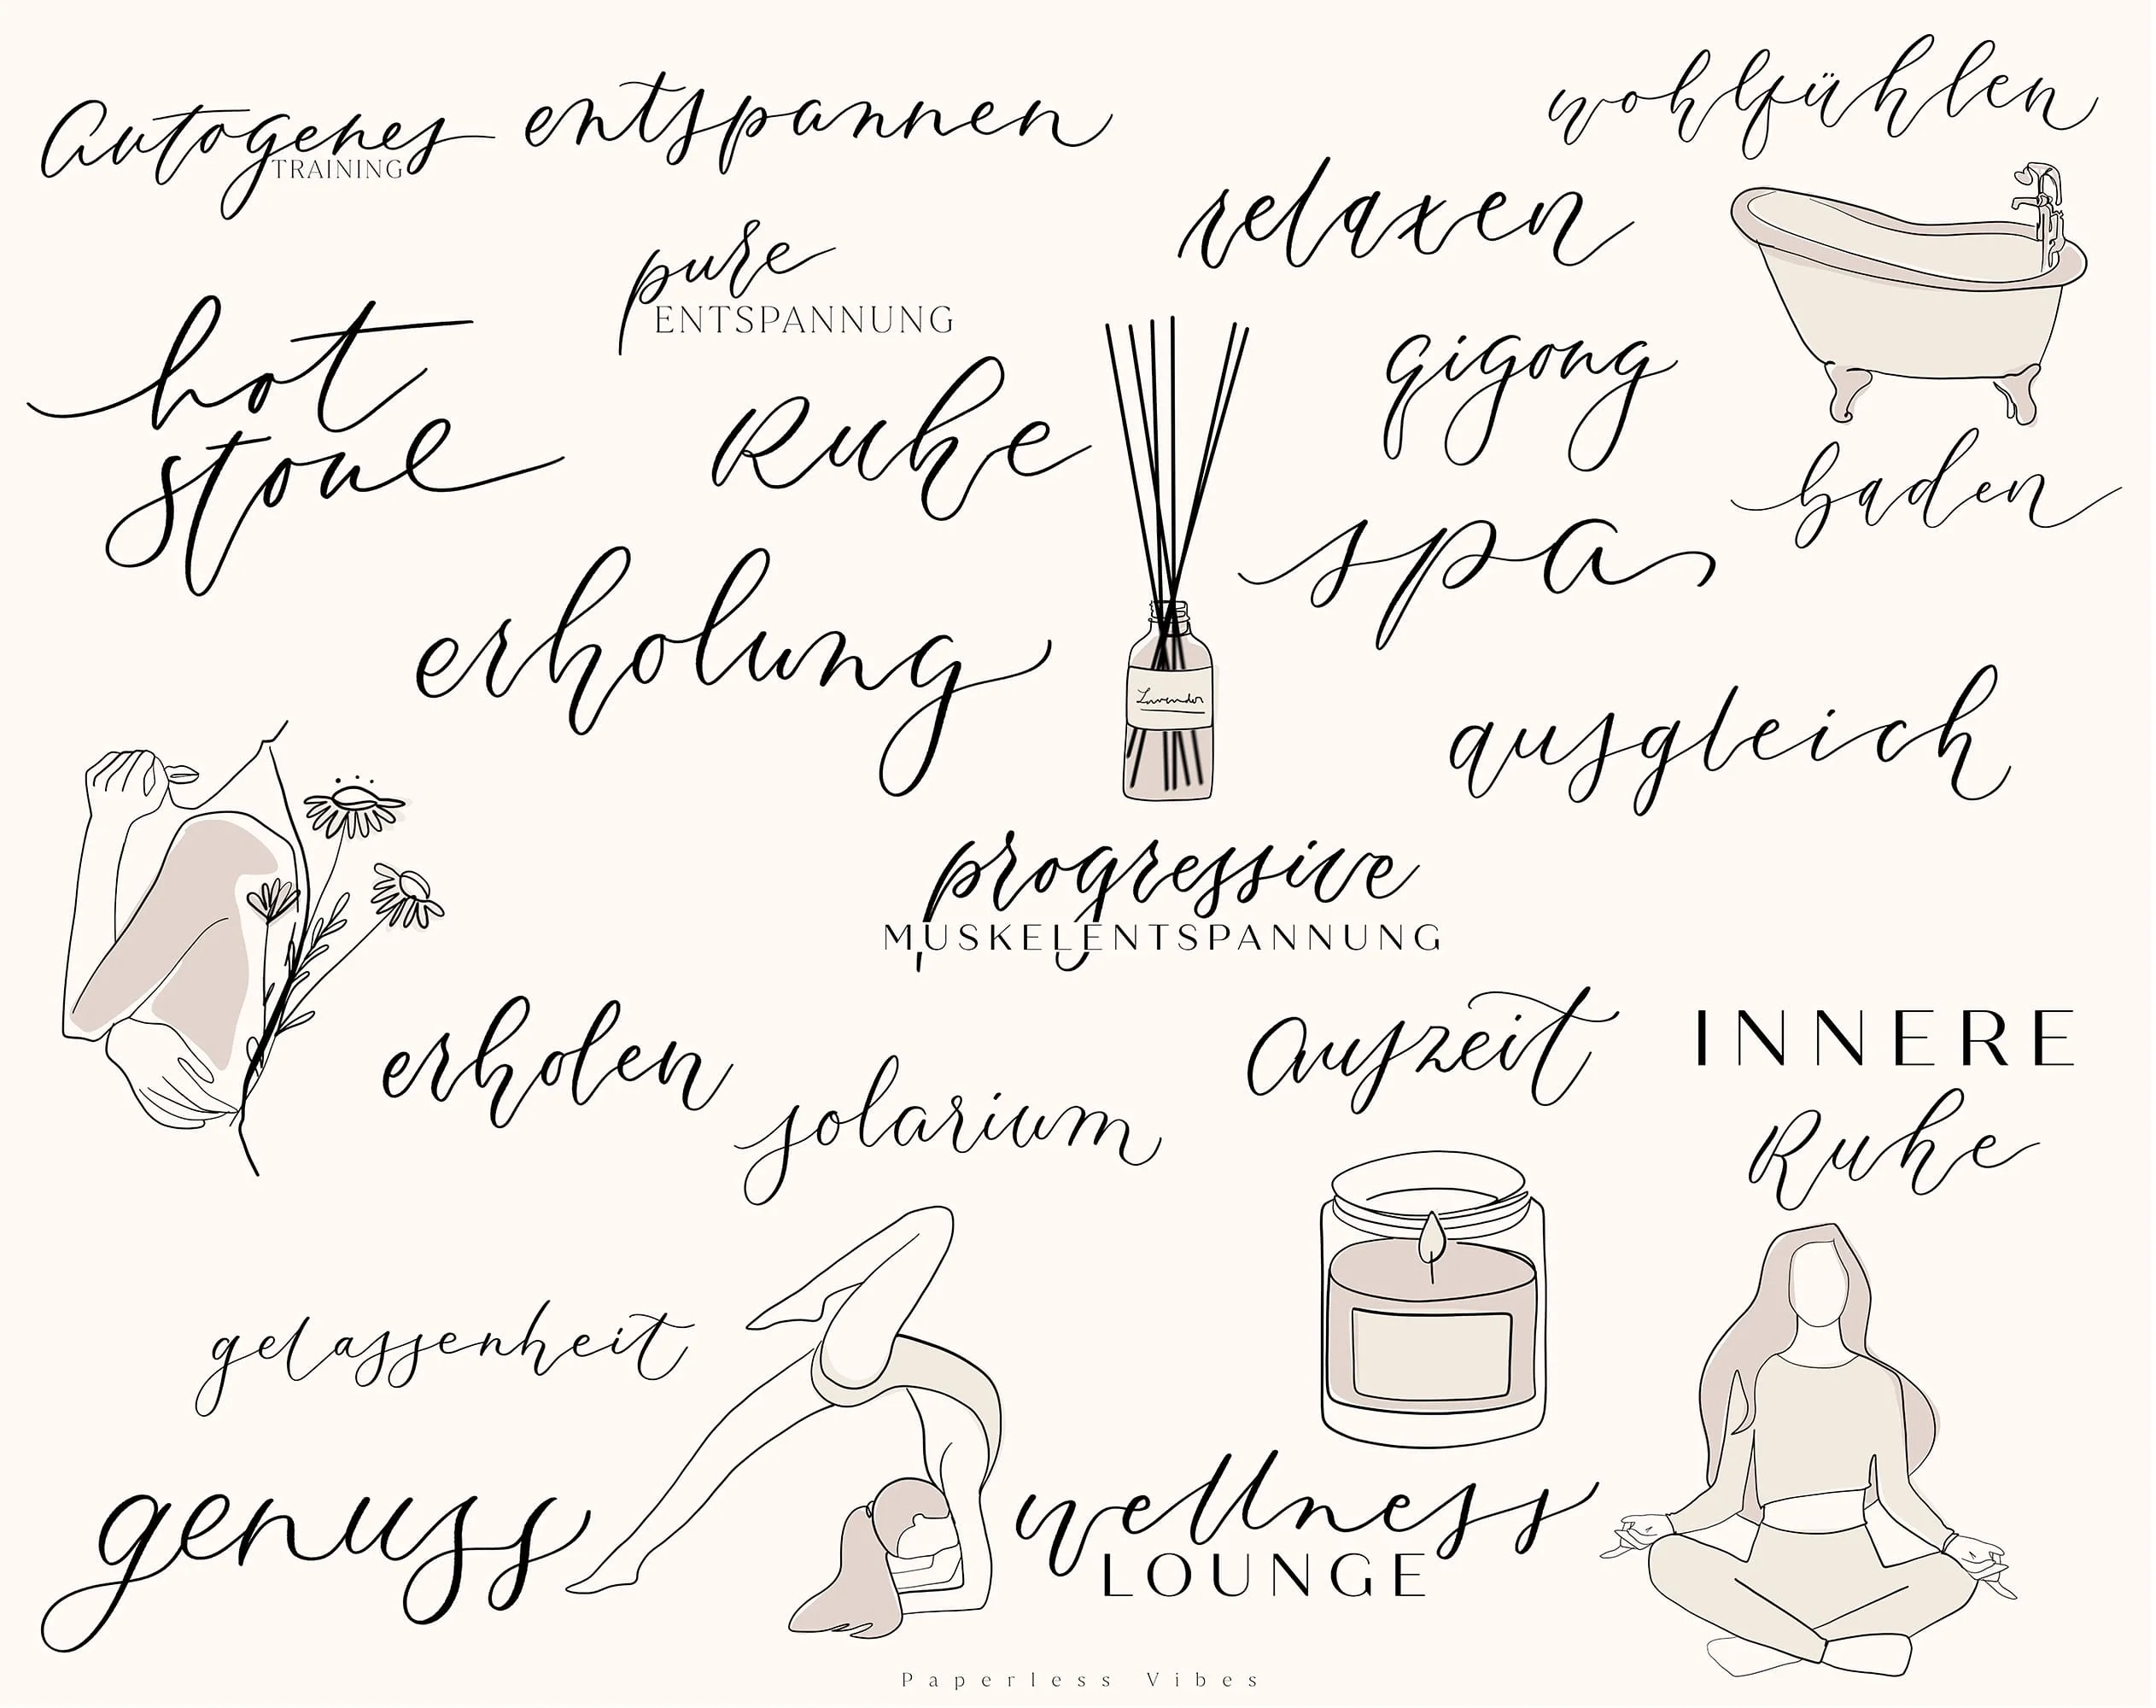 Autogenes
TRAINING
entspannen
wohlfühlen
relaxen
pure
ENTSPANNUNG
hot
stone
Ruhe
qigong
baden
spa
erholung
Lavender
ausgleich
progressive
MUSKELENTSPANNUNG
erholen
solarium
Auszeit
INNERE
Ruhe
gelassenheit
genuss
wellness
LOUNGE
Paperless Vibes